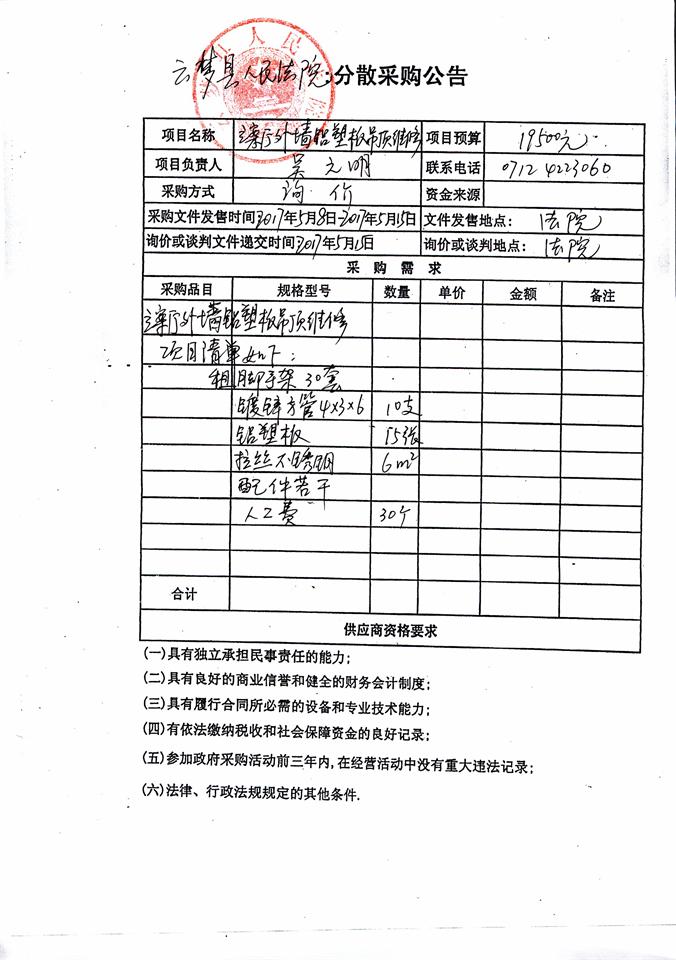 云梦县人民法院:分散采购公告
项目名称 审判厅外墙铝塑板吊顶维修 项目预算 19500元
项目负责人 吴元明 联系电话 0712 4223060
采购方式 询价 资金来源
采购文件发售时间 2017年5月8日-2017年5月15日 文件发售地点: 法院
询价或谈判文件递交时间 2017年5月15日 询价或谈判地点: 法院
采购需求
采购品目 规格型号 数量 单价 金额 备注
外墙铝塑板吊顶维修
项目清单如下:
租脚手架 30套
镀锌方管 4x3x6 10支
铝塑板 15张
拉丝不锈钢 6m²
配件若干
人工费 30个
合计
供应商资格要求
(一)具有独立承担民事责任的能力;
(二)具有良好的商业信誉和健全的财务会计制度;
(三)具有履行合同所必需的设备和专业技术能力;
(四)有依法缴纳税收和社会保障资金的良好记录;
(五)参加政府采购活动前三年内,在经营活动中没有重大违法记录;
(六)法律、行政法规规定的其他条件.